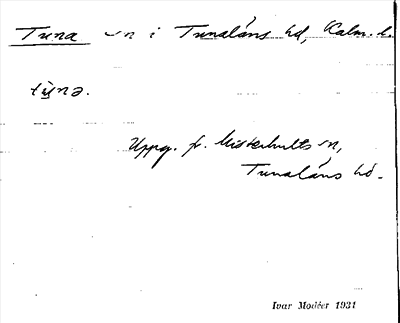 Tuna sn i Tunaläns hd, Kalm. l.
tu̲nə.
Uppg. fr. Misterhults sn,
Tunaläns hd.
Ivar Modéer 1931